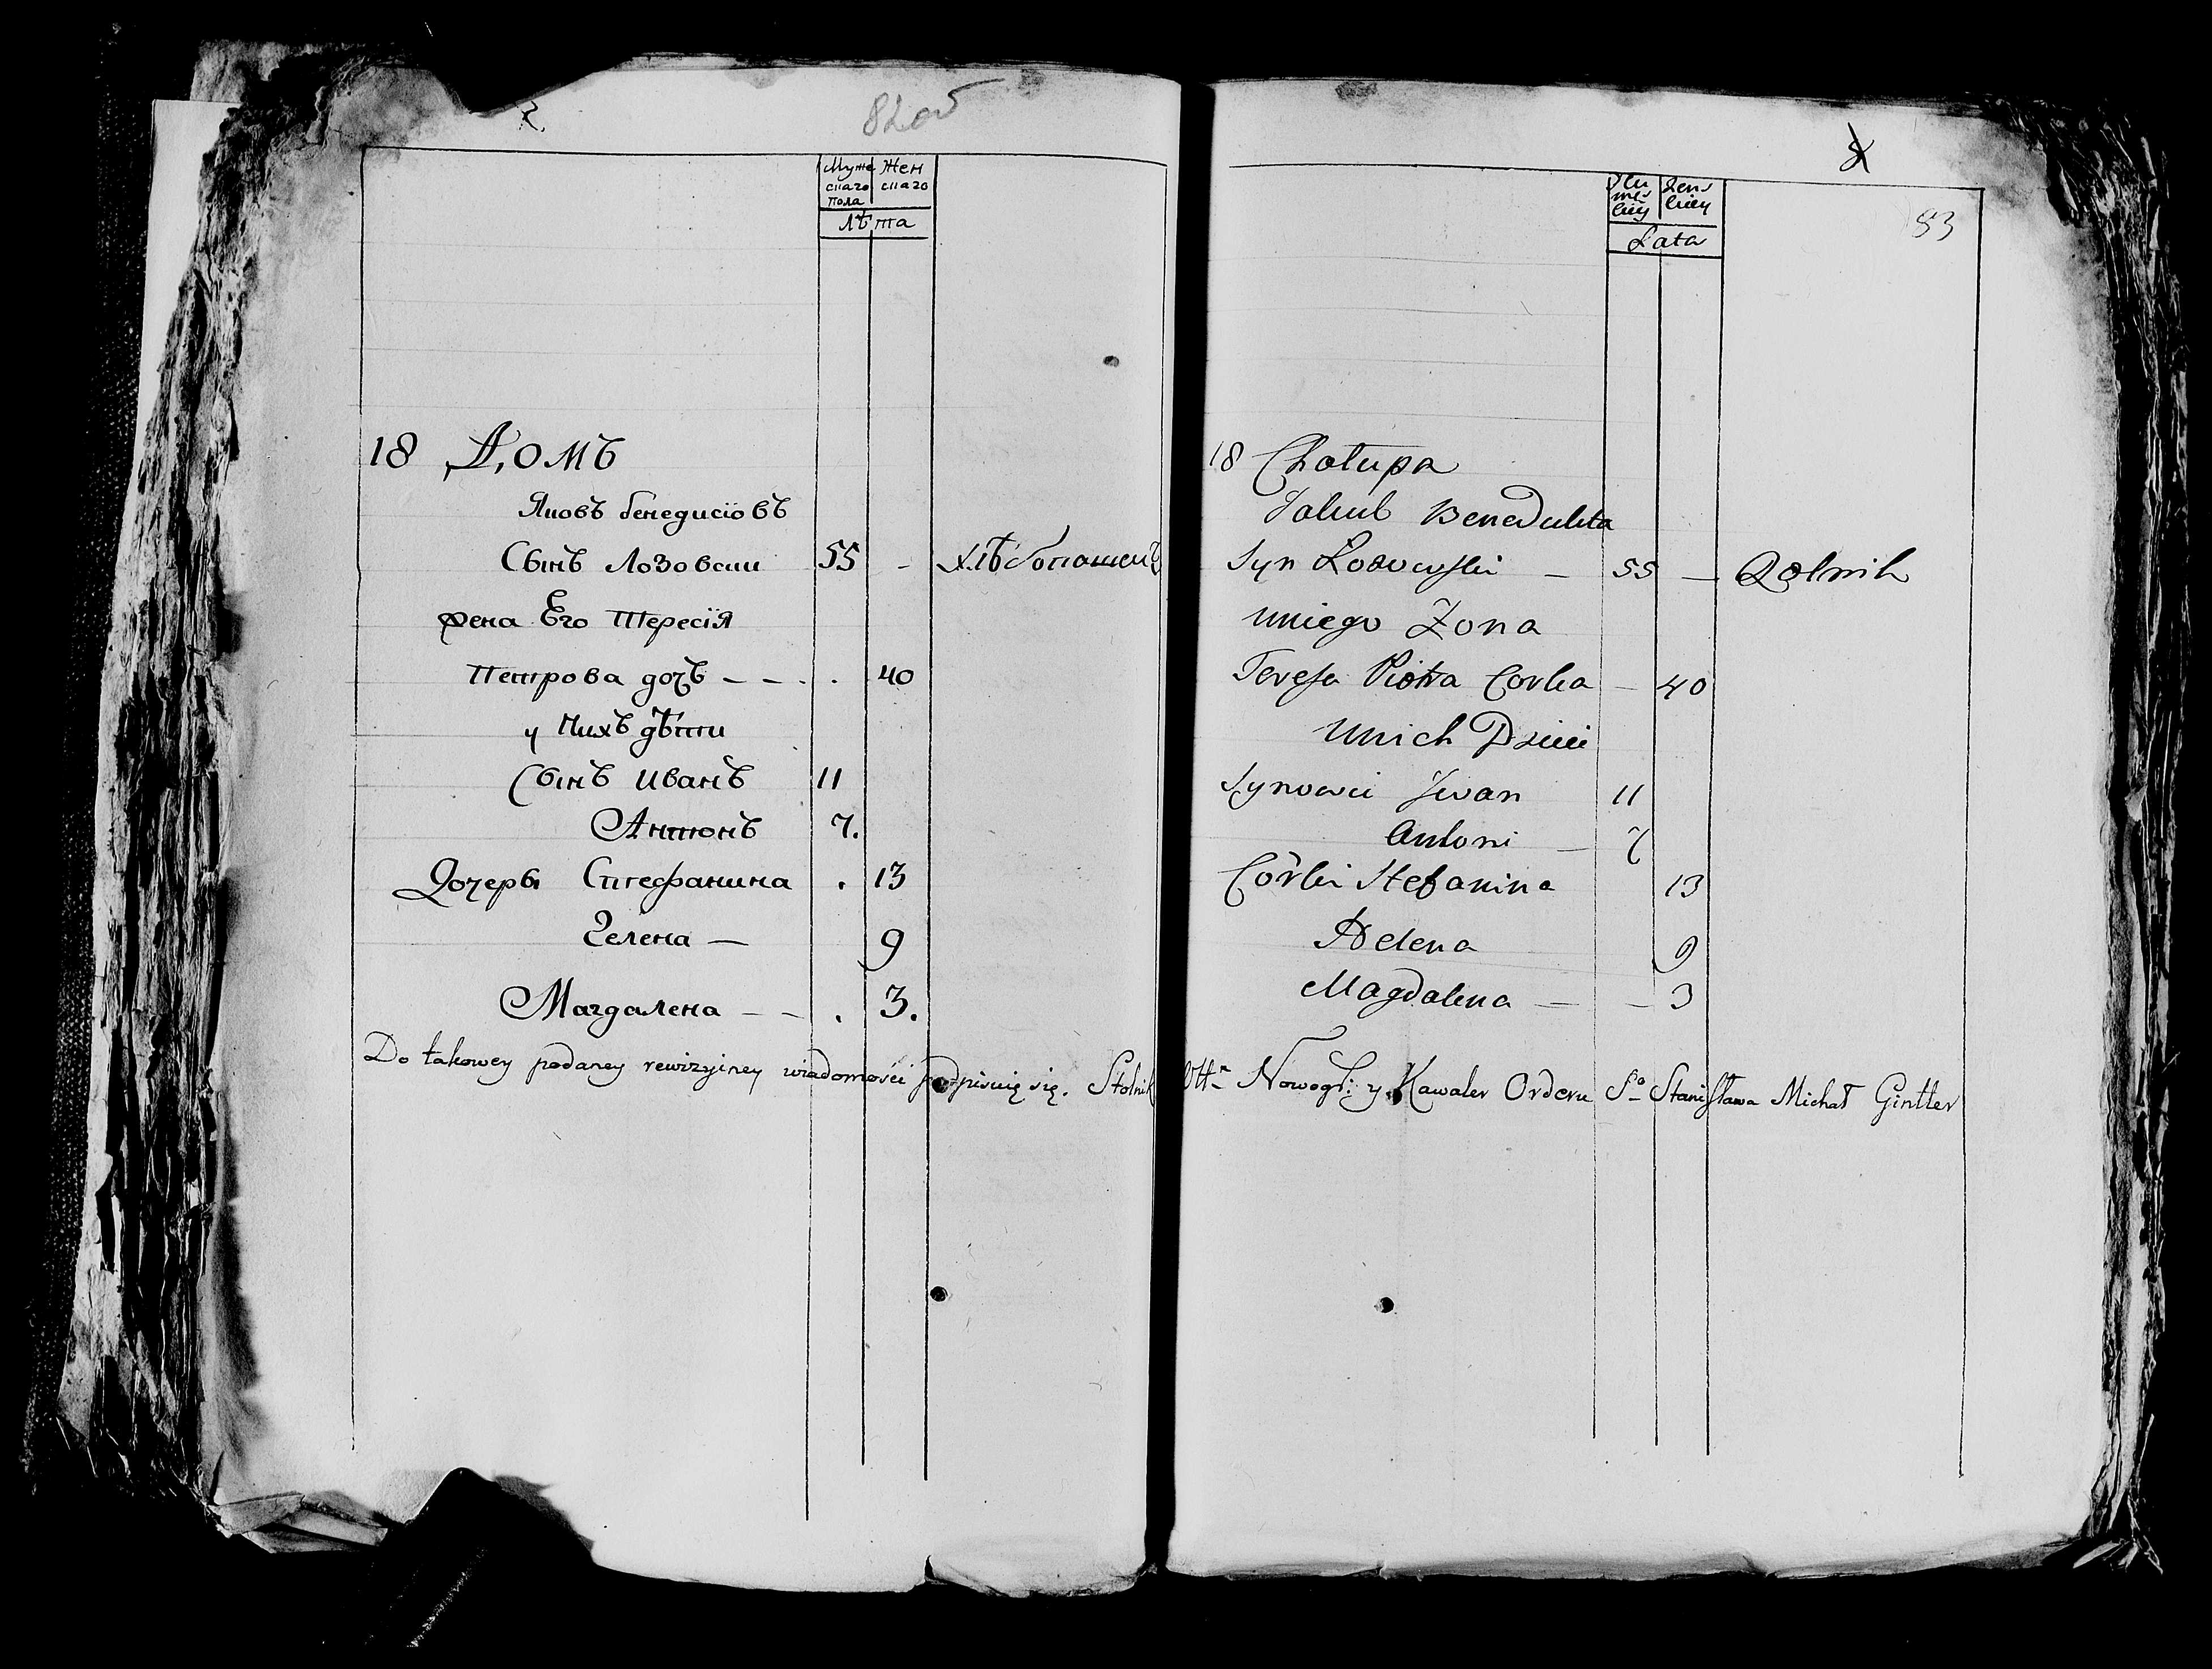 82об
Муже Жен
скаго скаго
пола
Лѣта
18 Домъ
Яковъ бенедиктовъ
Сынъ Лозовски 55 - хлѣбопашецъ
жена Его Тересія
Петрова дочъ - - . . 40
у Нихъ дѣти
Сынъ иванъ 11
Антонъ 7.
Дочеры Стефанина . 13
Гелена — 9
Магдалена - - . 3.
83
Lata
18 Chałupa
Jakub Benedykta
Syn Łozowski — 55 — Rolnik
uniego Żona
Teresa Piotra Corka — 40
Unich Dzieci
Synowie Jwan 11
Antoni — 7
Córki Stefanina 13
Helena 9
Magdalena — — 3
Do takowey podaney rewizyiney wiadomości podpisuię się. Stolnik Wtt Nowogr: y Kawaler Orderu So Stanisława Michał Gintter